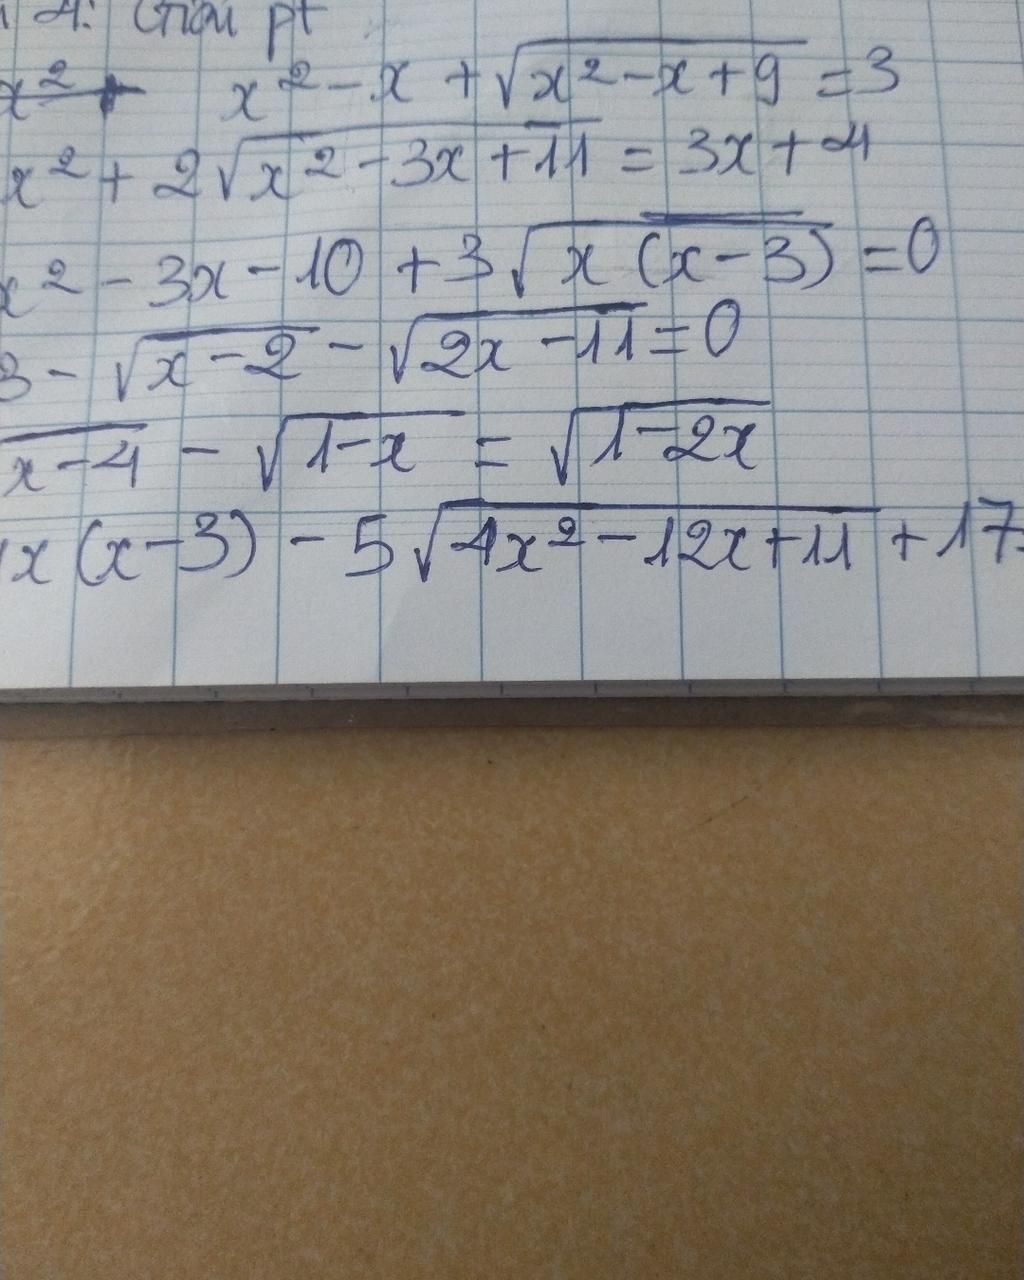 4: Giải pt
x² + x² - x + √(x² - x + 9) = 3
x² + 2√(x² - 3x + 11) = 3x + 4
x² - 3x - 10 + 3√(x(x - 3)) = 0
3 - √(x - 2) - √(2x - 11) = 0
√(x - 4) - √(1 - x) = √(1 - 2x)
x(x - 3) - 5√(4x² - 12x + 11) + 17